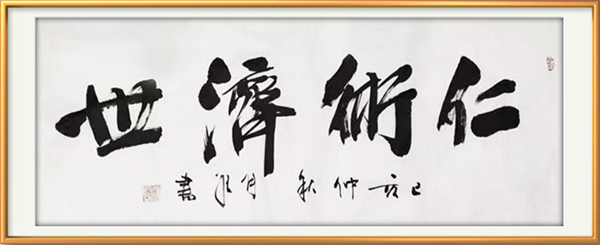 仁術濟世
己亥仲秋月書